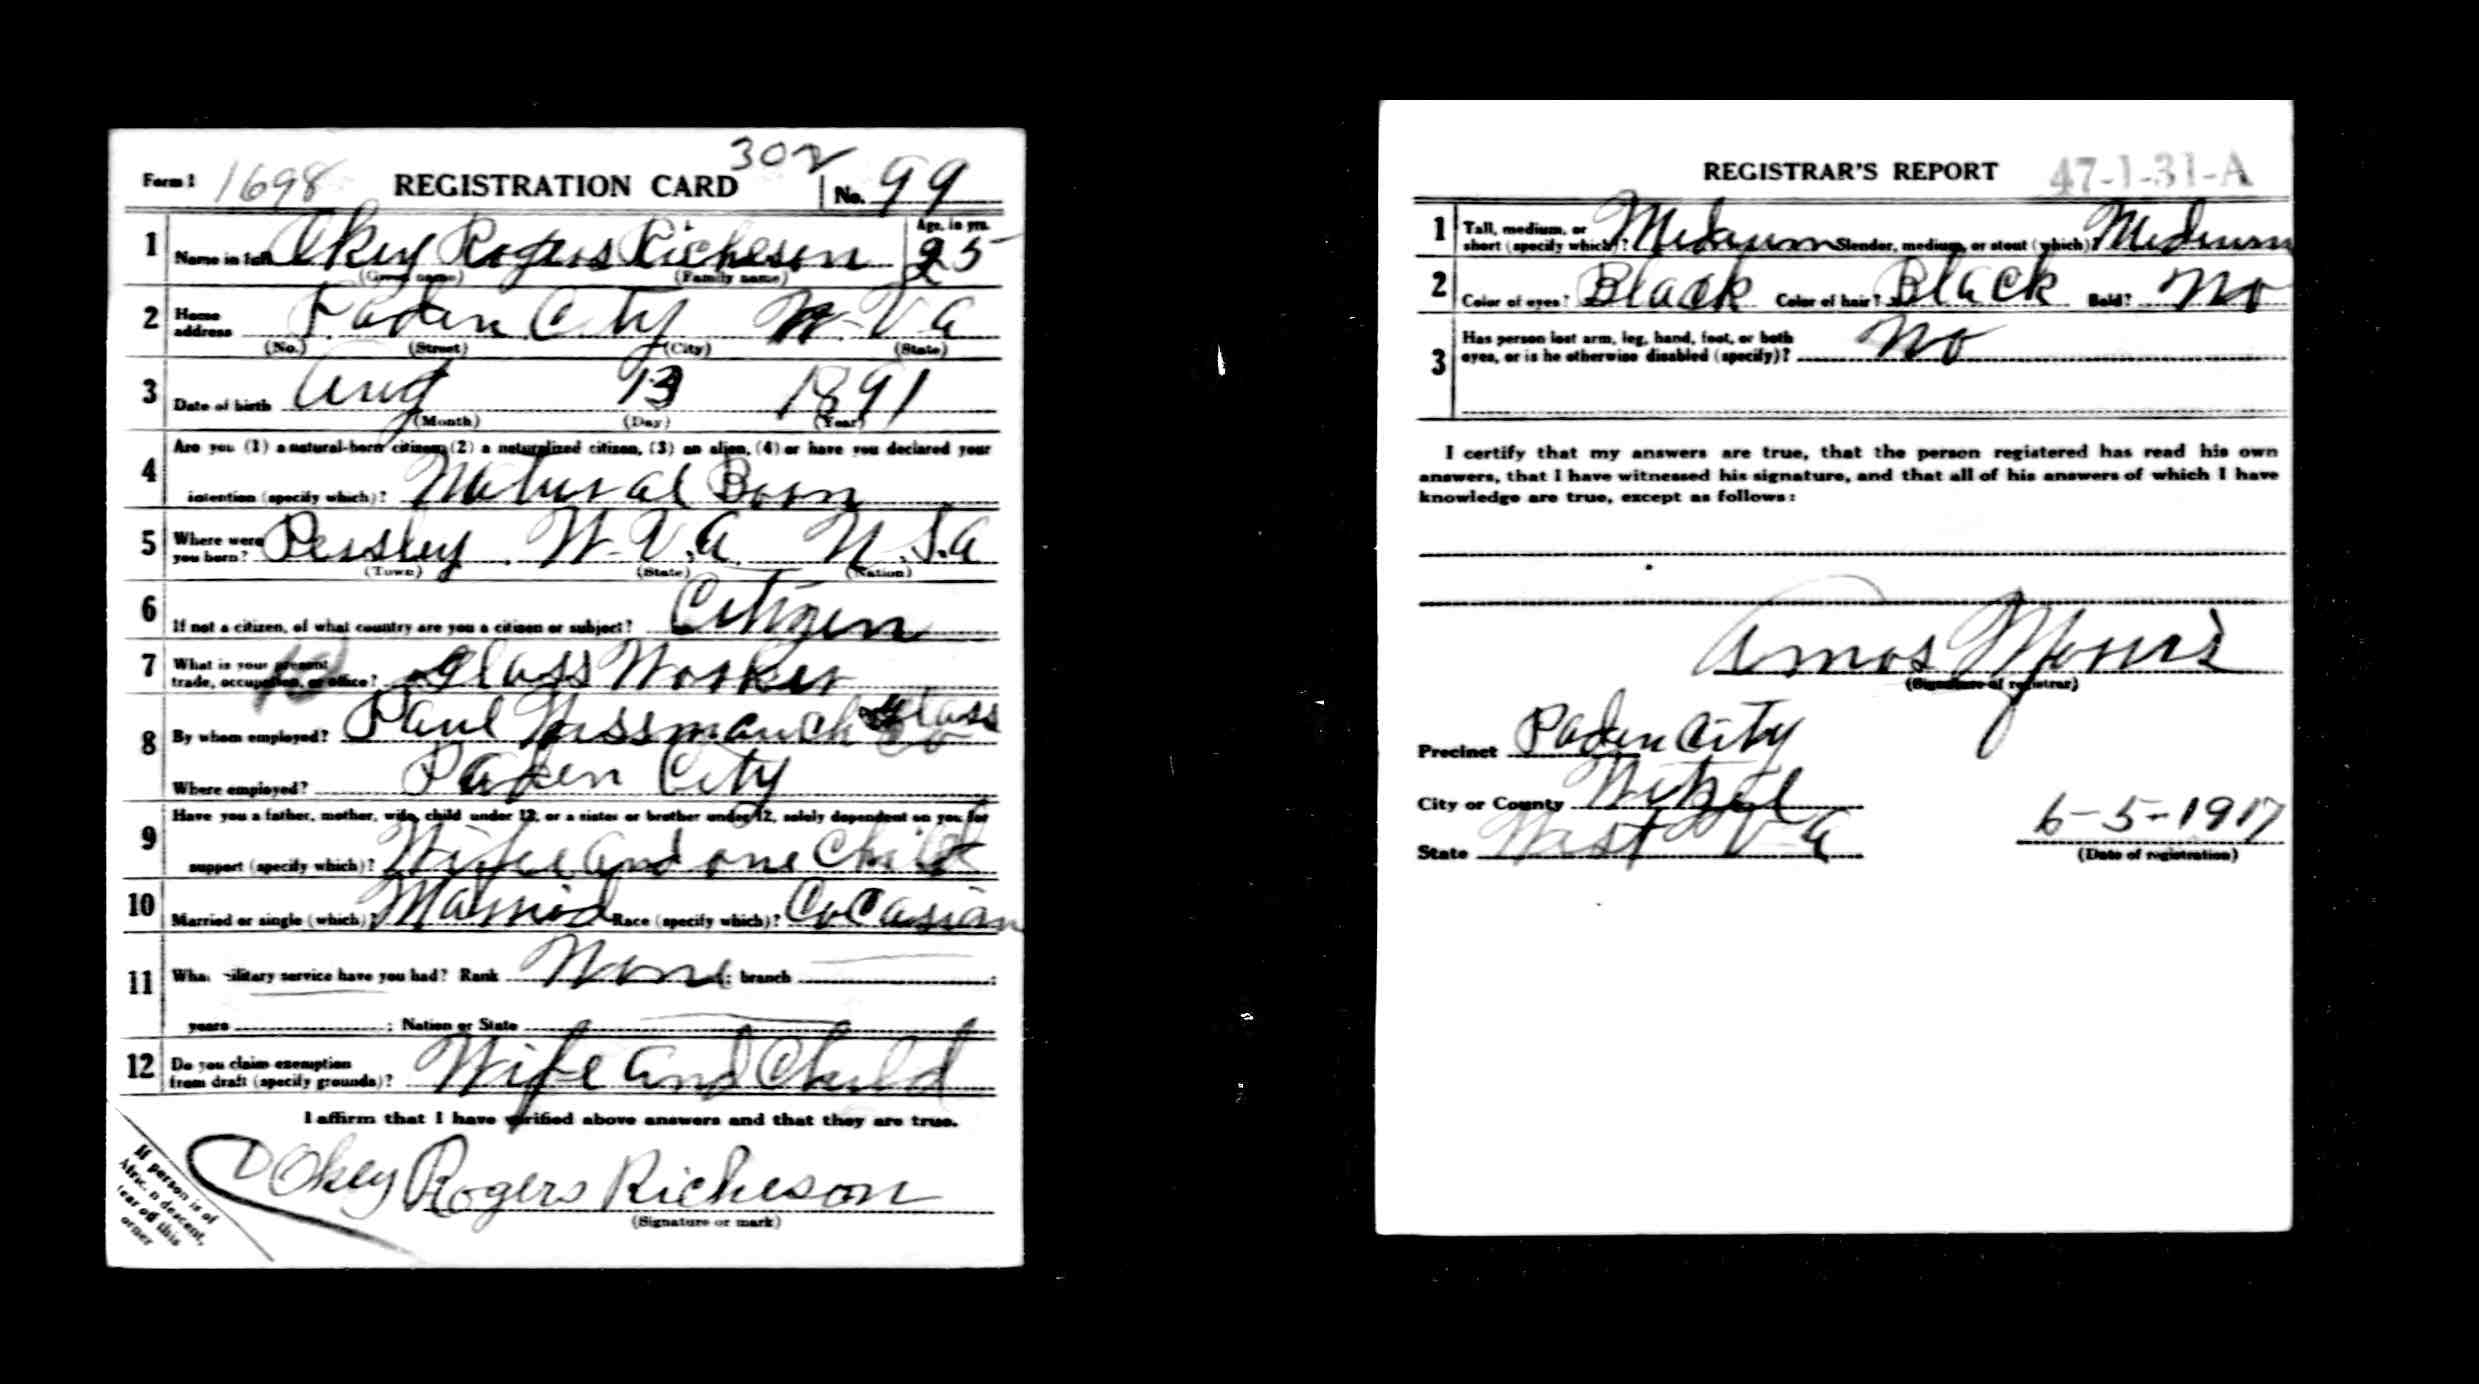 Form 1 1698 REGISTRATION CARD 302 No. 99
1 Name in full Okey Rogers Richeson Age, in yrs. 25
(Given name) (Family name)
2 Home address Paden City W. Va
(No.) (Street) (City) (State)
3 Date of birth Aug 13 1891
(Month) (Day) (Year)
4 Are you (1) a natural-born citizen, (2) a naturalized citizen, (3) an alien, (4) or have you declared your
intention (specify which)? Natural Born
5 Where were you born? Pessley, W. V.A. U.S.A
(Town) (State) (Nation)
6 If not a citizen, of what country are you a citizen or subject? Citizen
7 What is your present trade, occupation, or office? Glass Worker
8 By whom employed? Paul Wissmanch Glass Co
Where employed? Paden City
9 Have you a father, mother, wife, child under 12, or a sister or brother under 12, solely dependent on you for
support (specify which)? Wife and one Child
10 Married or single (which)? Married Race (specify which)? CoCasian
11 What military service have you had? Rank None; branch ;
years ; Nation or State
12 Do you claim exemption from draft (specify grounds)? Wife and Child
I affirm that I have verified above answers and that they are true.
Okey Rogers Richeson
(Signature or mark)
If person is of
African descent,
tear off this
corner
REGISTRAR'S REPORT 47-1-31-A
1 Tall, medium, or short (specify which)? Medium Slender, medium, or stout (which)? Medium
2 Color of eyes? Black Color of hair? Black Bald? No
3 Has person lost arm, leg, hand, foot, or both
eyes, or is he otherwise disabled (specify)? No
I certify that my answers are true, that the person registered has read his own
answers, that I have witnessed his signature, and that all of his answers of which I have
knowledge are true, except as follows:
Amos Morris
(Signature of registrar)
Precinct Paden City
City or County Wetzel
State West Va 6-5-1917
(Date of registration)